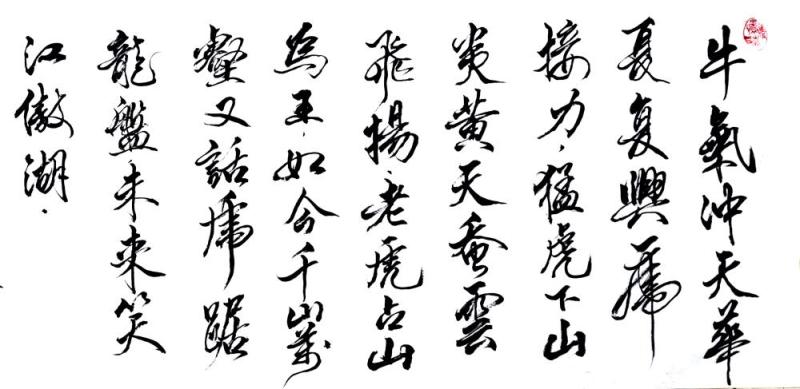 牛氣沖天華
夏復興虎
接力猛虎下山
炎黃天香雲
飛揚老虎占山
為王如今千山萬
壑又話虎踞
龍盤未來笑
江傲湖